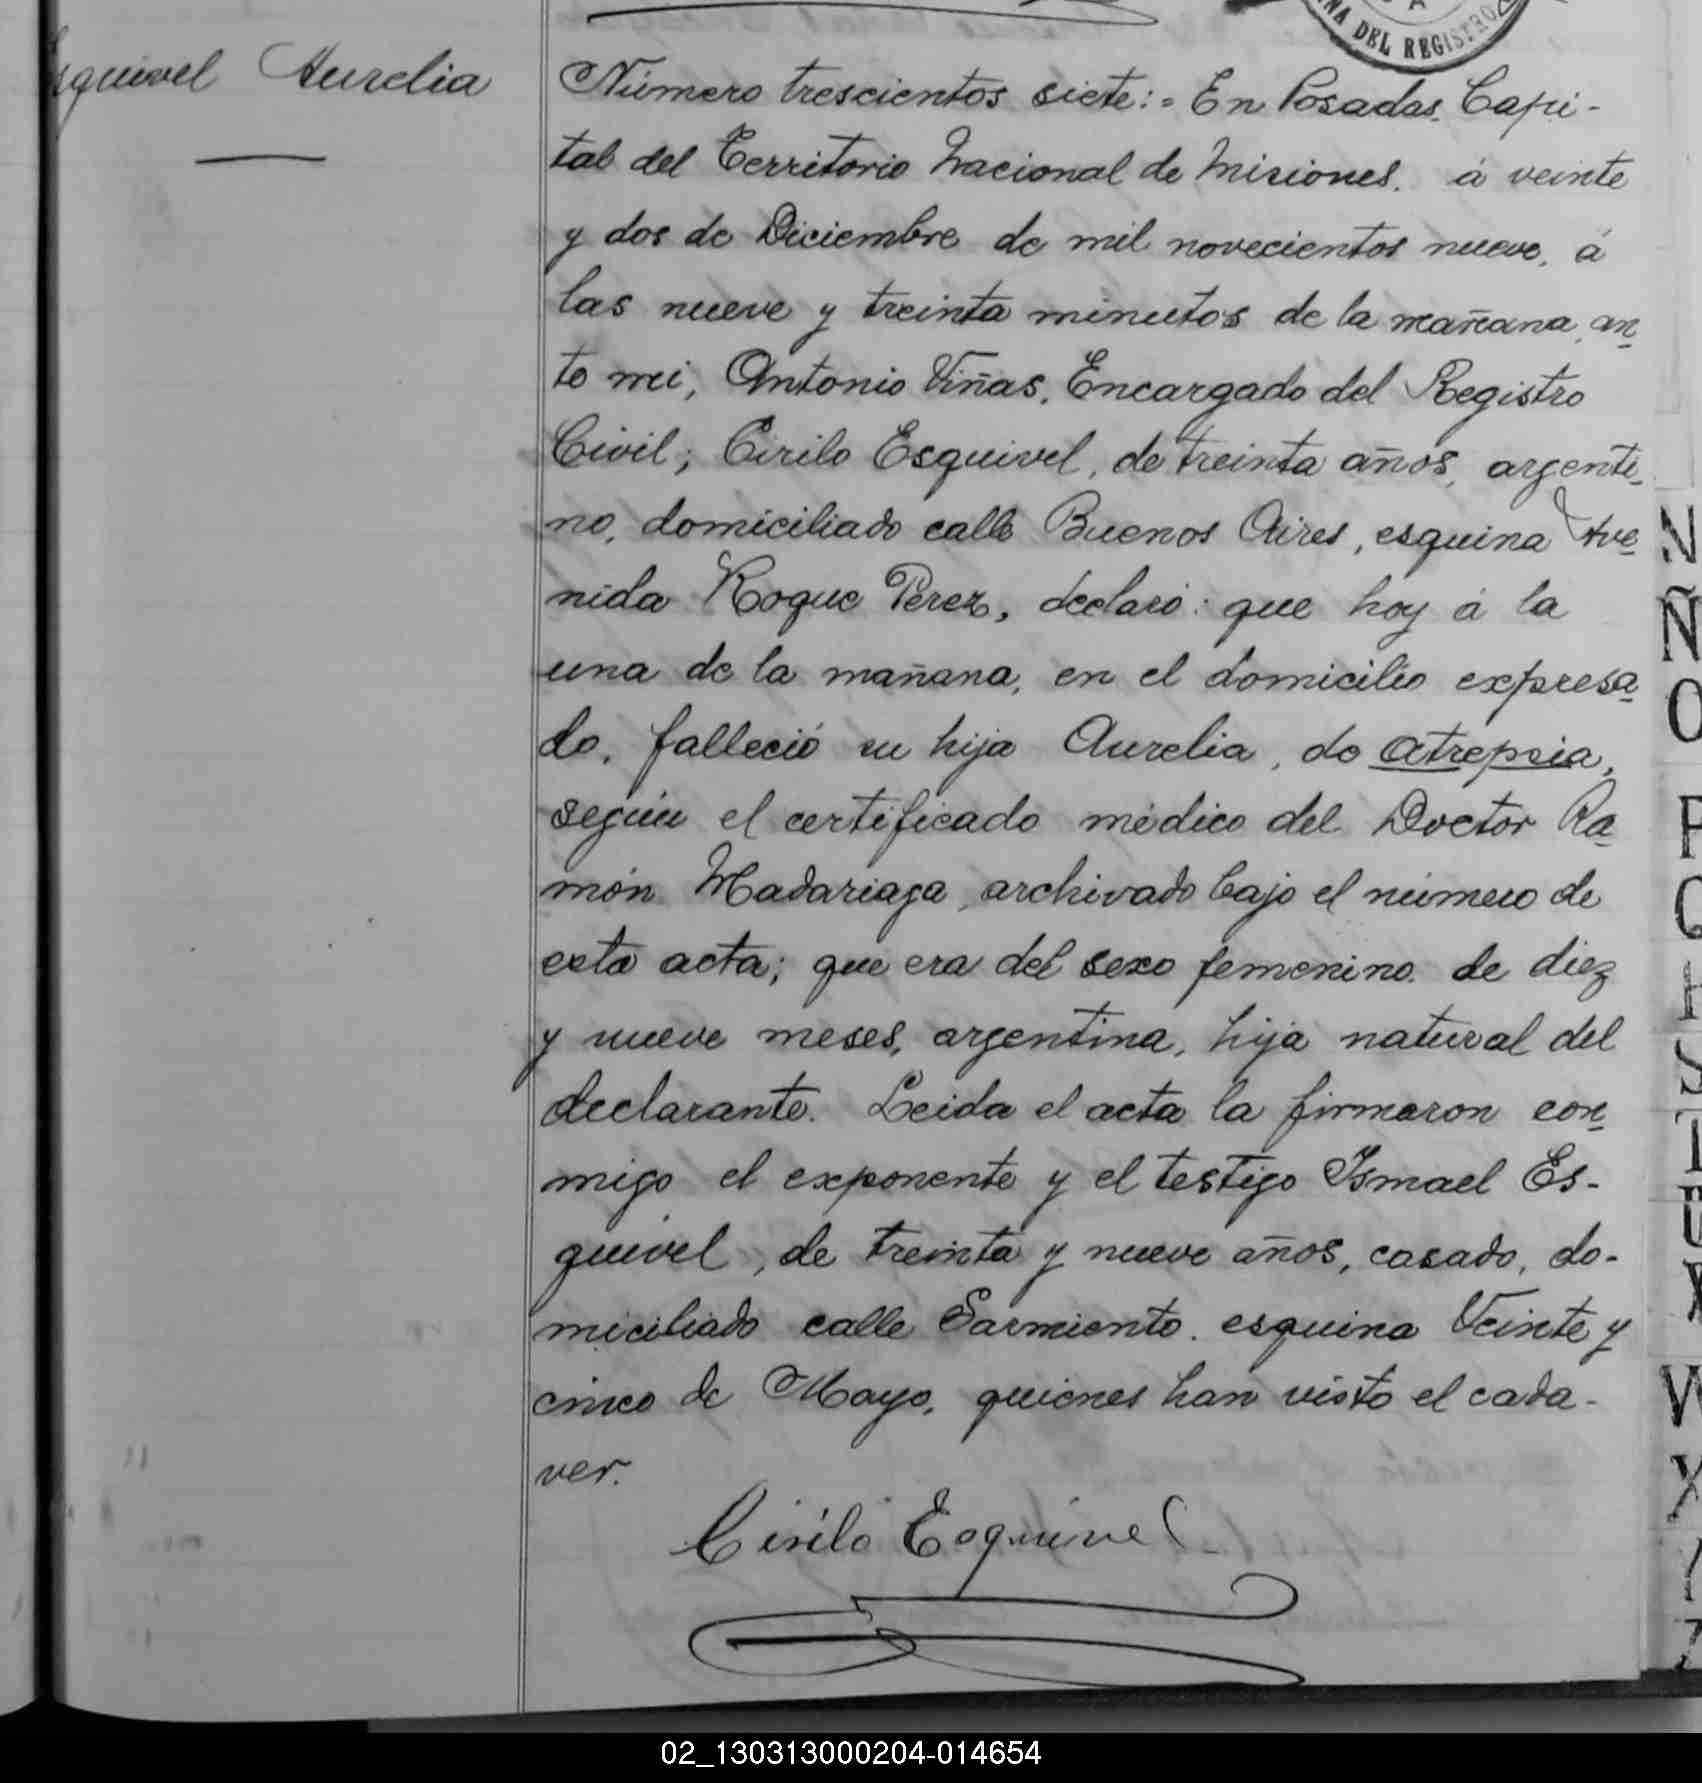 DEL REGISTRO
Esquivel Aurelia
Número trescientos siete: = En Posadas, Capi-
tal del Territorio Nacional de Misiones, á veinte
y dos de Diciembre de mil novecientos nueve, á
las nueve y treinta minutos de la mañana, an
te mi, Antonio Viñas, Encargado del Registro
Civil; Cirilo Esquivel, de treinta años, argenti
no, domiciliado calle Buenos Aires, esquina Ave
nida Roque Perez, declaró: que hoy á la
una de la mañana, en el domicilio expresa
do, falleció su hija Aurelia, de atrepsia,
según el certificado médico del Doctor Ra
món Madariaga, archivado bajo el número de
esta acta; que era del sexo femenino, de diez
y nueve meses, argentina, hija natural del
declarante. Leida el acta la firmaron con
migo el exponente y el testigo Ismael Es-
quivel, de treinta y nueve años, casado, do-
miciliado calle Sarmiento, esquina Veinte y
cinco de Mayo, quienes han visto el cada-
ver.
Cirilo Esquivel
N
Ñ
O
P
Q
R
S
T
U
V
W
X
Y
Z
02_130313000204-014654